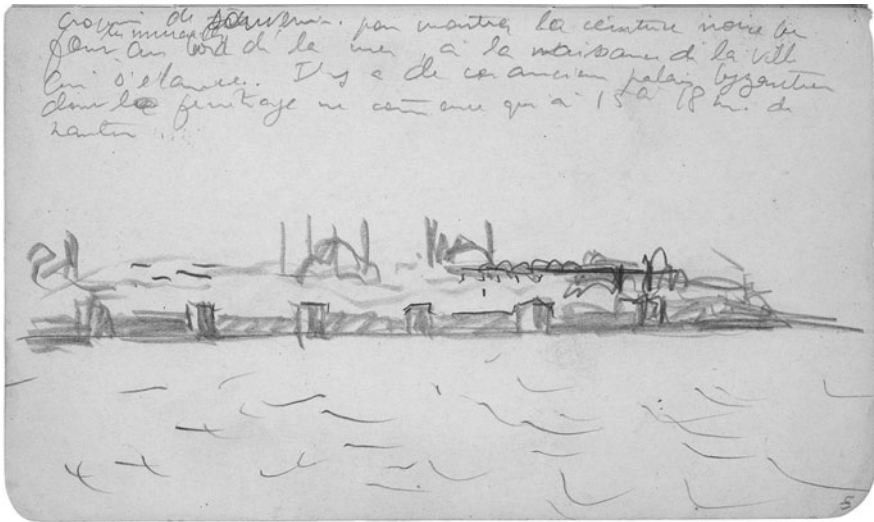 croquis de souvenir. pour montrer la ceinture noire
les murailles
au bord de la mer, à la naissance de la ville
qui s'élance. Il y a de ces anciens palais byzantins
dont le fenêtrage ne commence qu'à 15 à 18 m. de
hauteur.
5